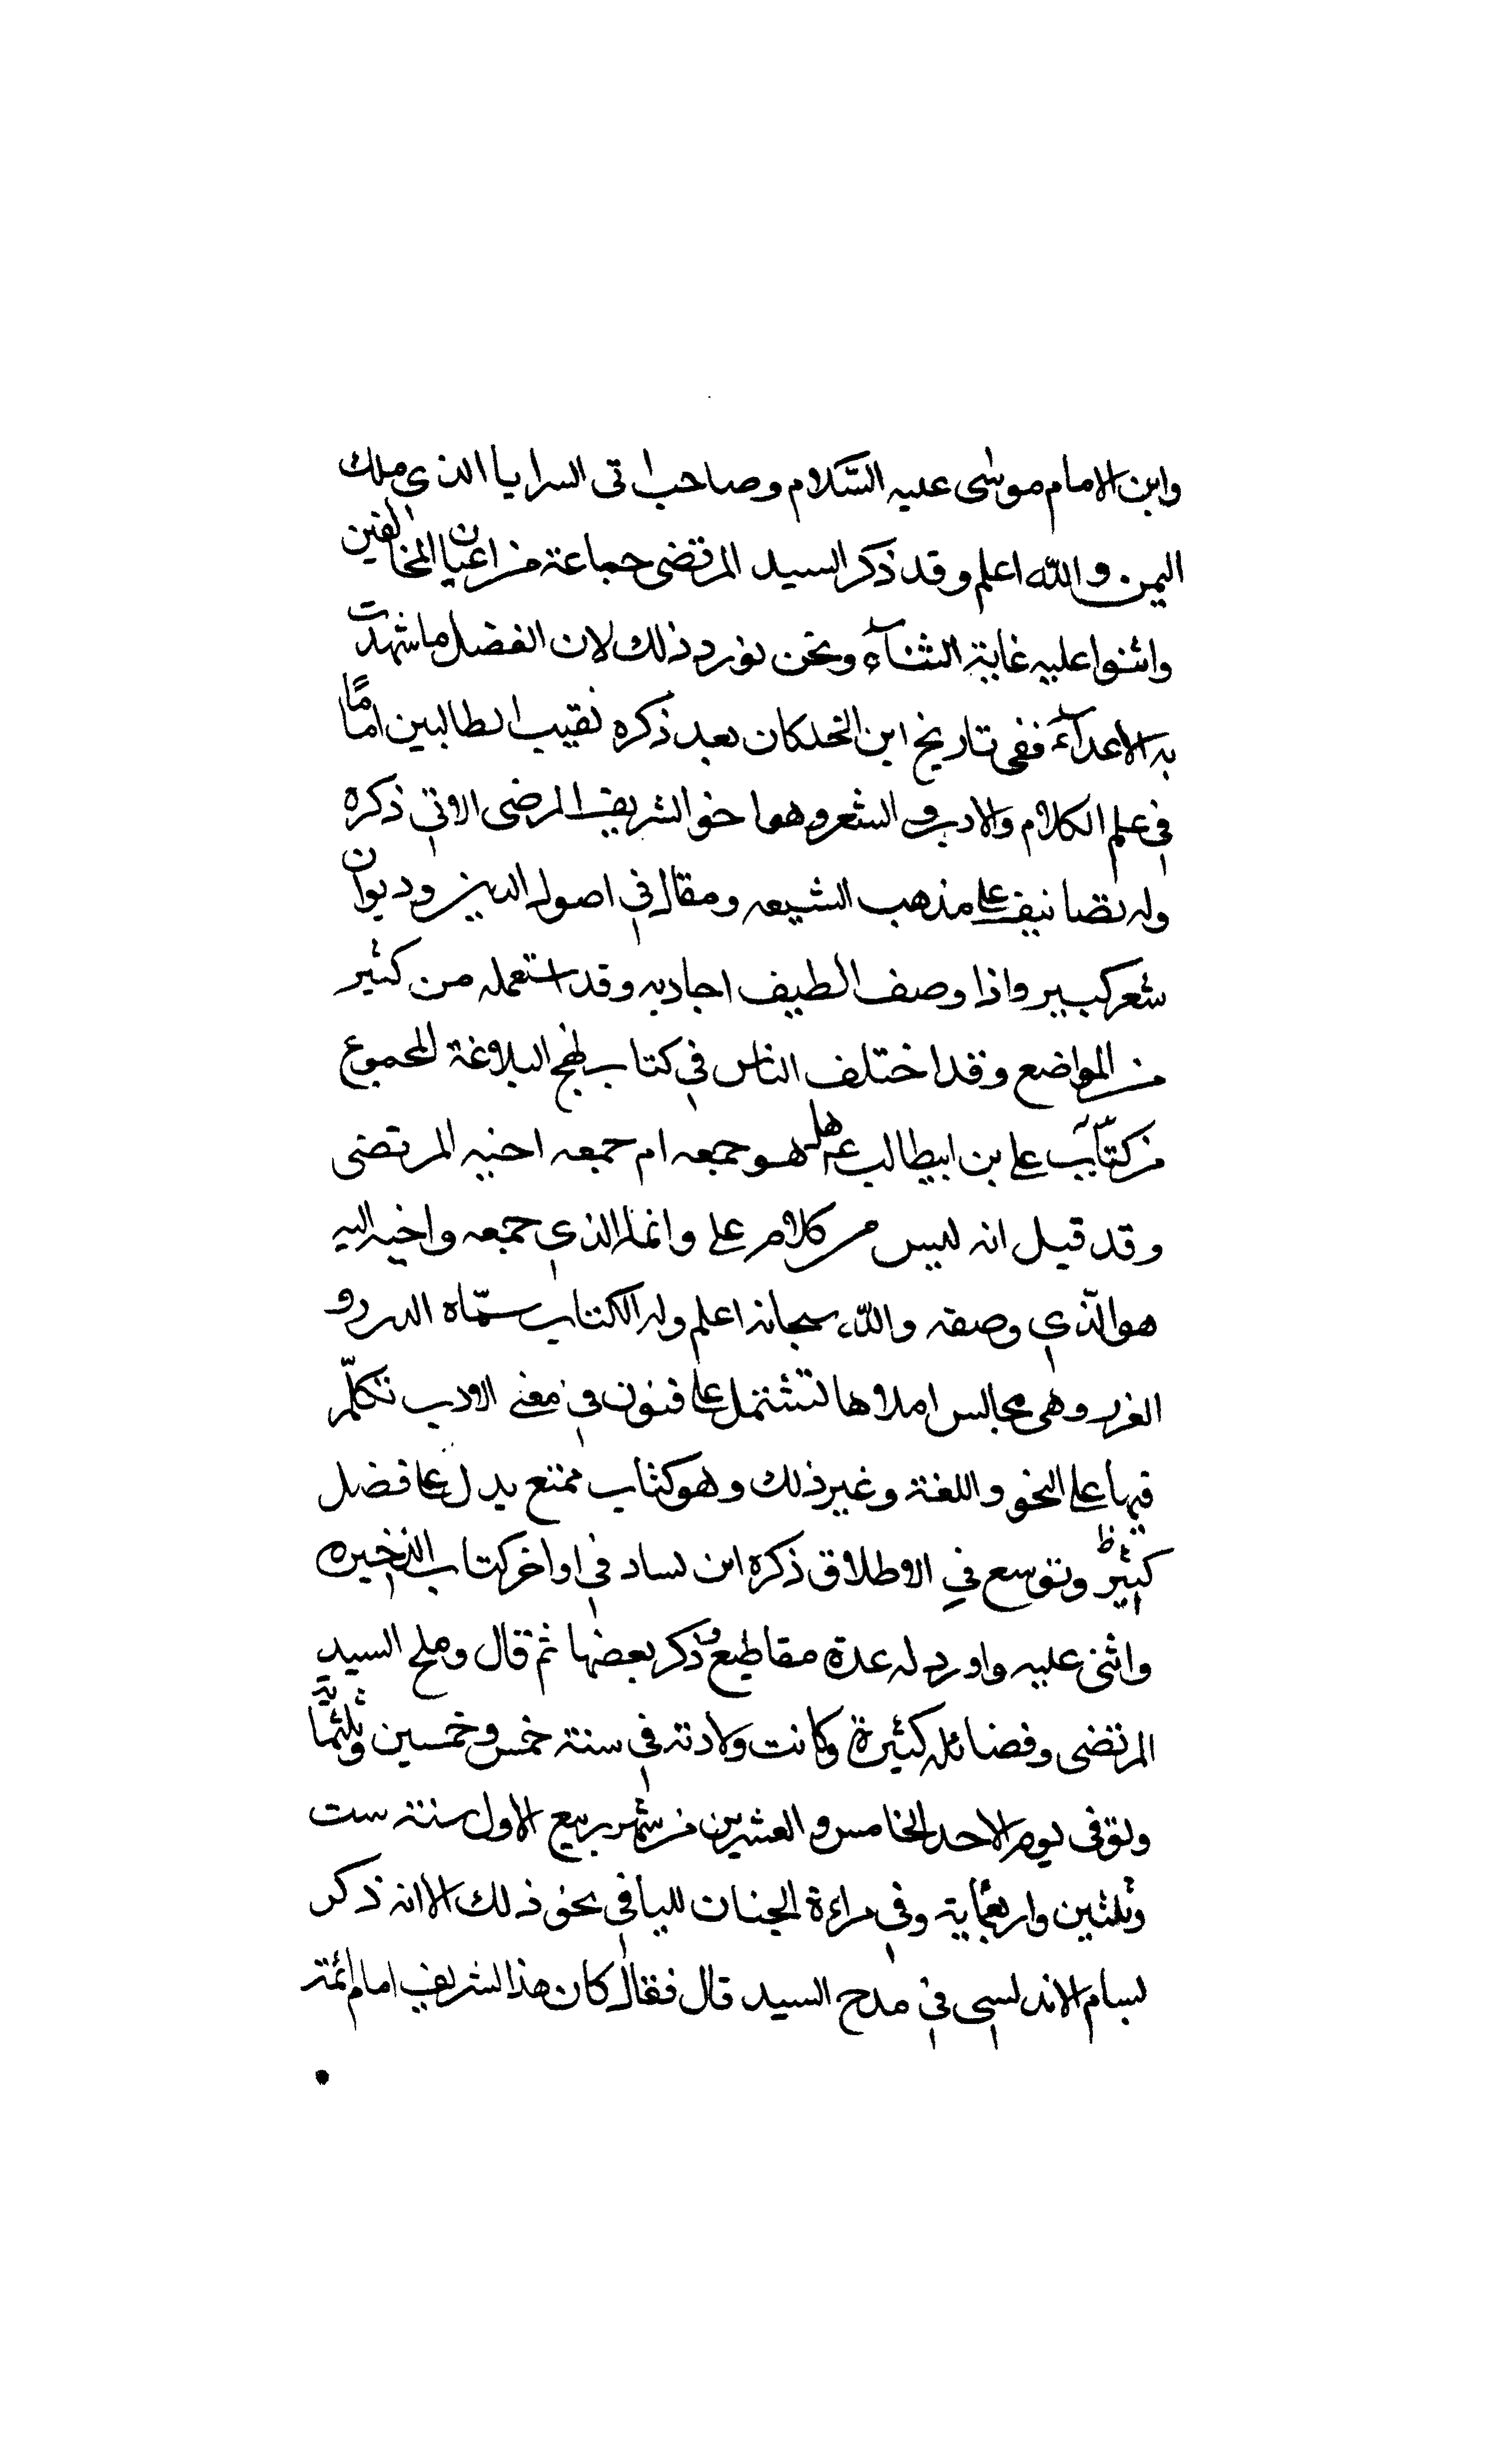 وابن الامام موسى عليه السّلام وصاحب اتى السرايا الذي ملك
اليمن والله اعلم وقد ذكر السيد المرتضى جماعة من اعيان المخالفين
واثنوا عليه غاية الثناء ونحن نورد ذلك لان الفضل ما شهدت
به الاعداء ففى تاريخ ابن الخلكان بعد ذكره نقيب الطالبين امامًا
في علم الكلام والادب والشعر وهو اخو الشريف المرضى الاتي ذكره
وله تصانيف على مذهب الشيعه ومقاله في اصول الدين وديوان
شعر كبير واذا وصف الطيف اجاد به وقد استعمله من كثير
من المواضع وقد اختلف الناس في كتاب نهج البلاغة المجموع
من كتاب على بن ابيطالب ع هل هو جمعه ام جمعه اخيه المرتضى
وقد قيل انه ليس من كلام على وانما الذي جمعه واخيه اليه
هو الّذي وصفه والله سبحانه اعلم وله الكتاب سمّاه الدرر و
الغرر وهى مجالس املاها لتشتمل على فنون في معنى الادب تكلّم
فيها على النحو واللغة وغير ذلك وهو كتاب ممتع يدل على فضل
كثير وتوسع في الاطلاق ذكره ابن لساد في اواخر كتاب الذخيره
واثنى عليه واورد له عدة مقاطيع وذكر بعضها ثم قال وملح السيد
المرتضى وفضائله كثيرة وكانت ولادته في سنة خمس وخمسين وثلثماية
وتوفى يوم الاحد الخامس والعشرين من شهر ربيع الاول سنة ست
وثلثين واربعماية وفي مراءة الجنان لليافي نحو ذلك الا انه ذكر
لبسام الاندلسي في مدح السيد قال فقال كان هذا الشريف امام ائمة